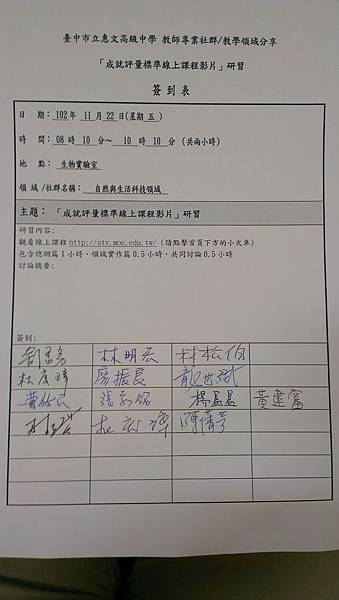 臺中市立惠文高級中學 教師專業社群/教學領域分享
「成就評量標準線上課程影片」研習
簽到表
日 期：102年 11月 22日(星期 五 )
時 間：08時 10 分～ 10 時 10 分 (共兩小時)
地 點： 生物實驗室
領 域/社群名稱： 自然與生活科技領域
主題： 「成就評量標準線上課程影片」研習
研習內容：
觀看線上課程 http://stv.moe.edu.tw/ (請點擊首頁下方的小火車)
包含總綱篇1小時、領域實作篇0.5小時，共同討論0.5小時
討論摘要：
簽到：
林明宏 林松伯
廖振良
黃建富